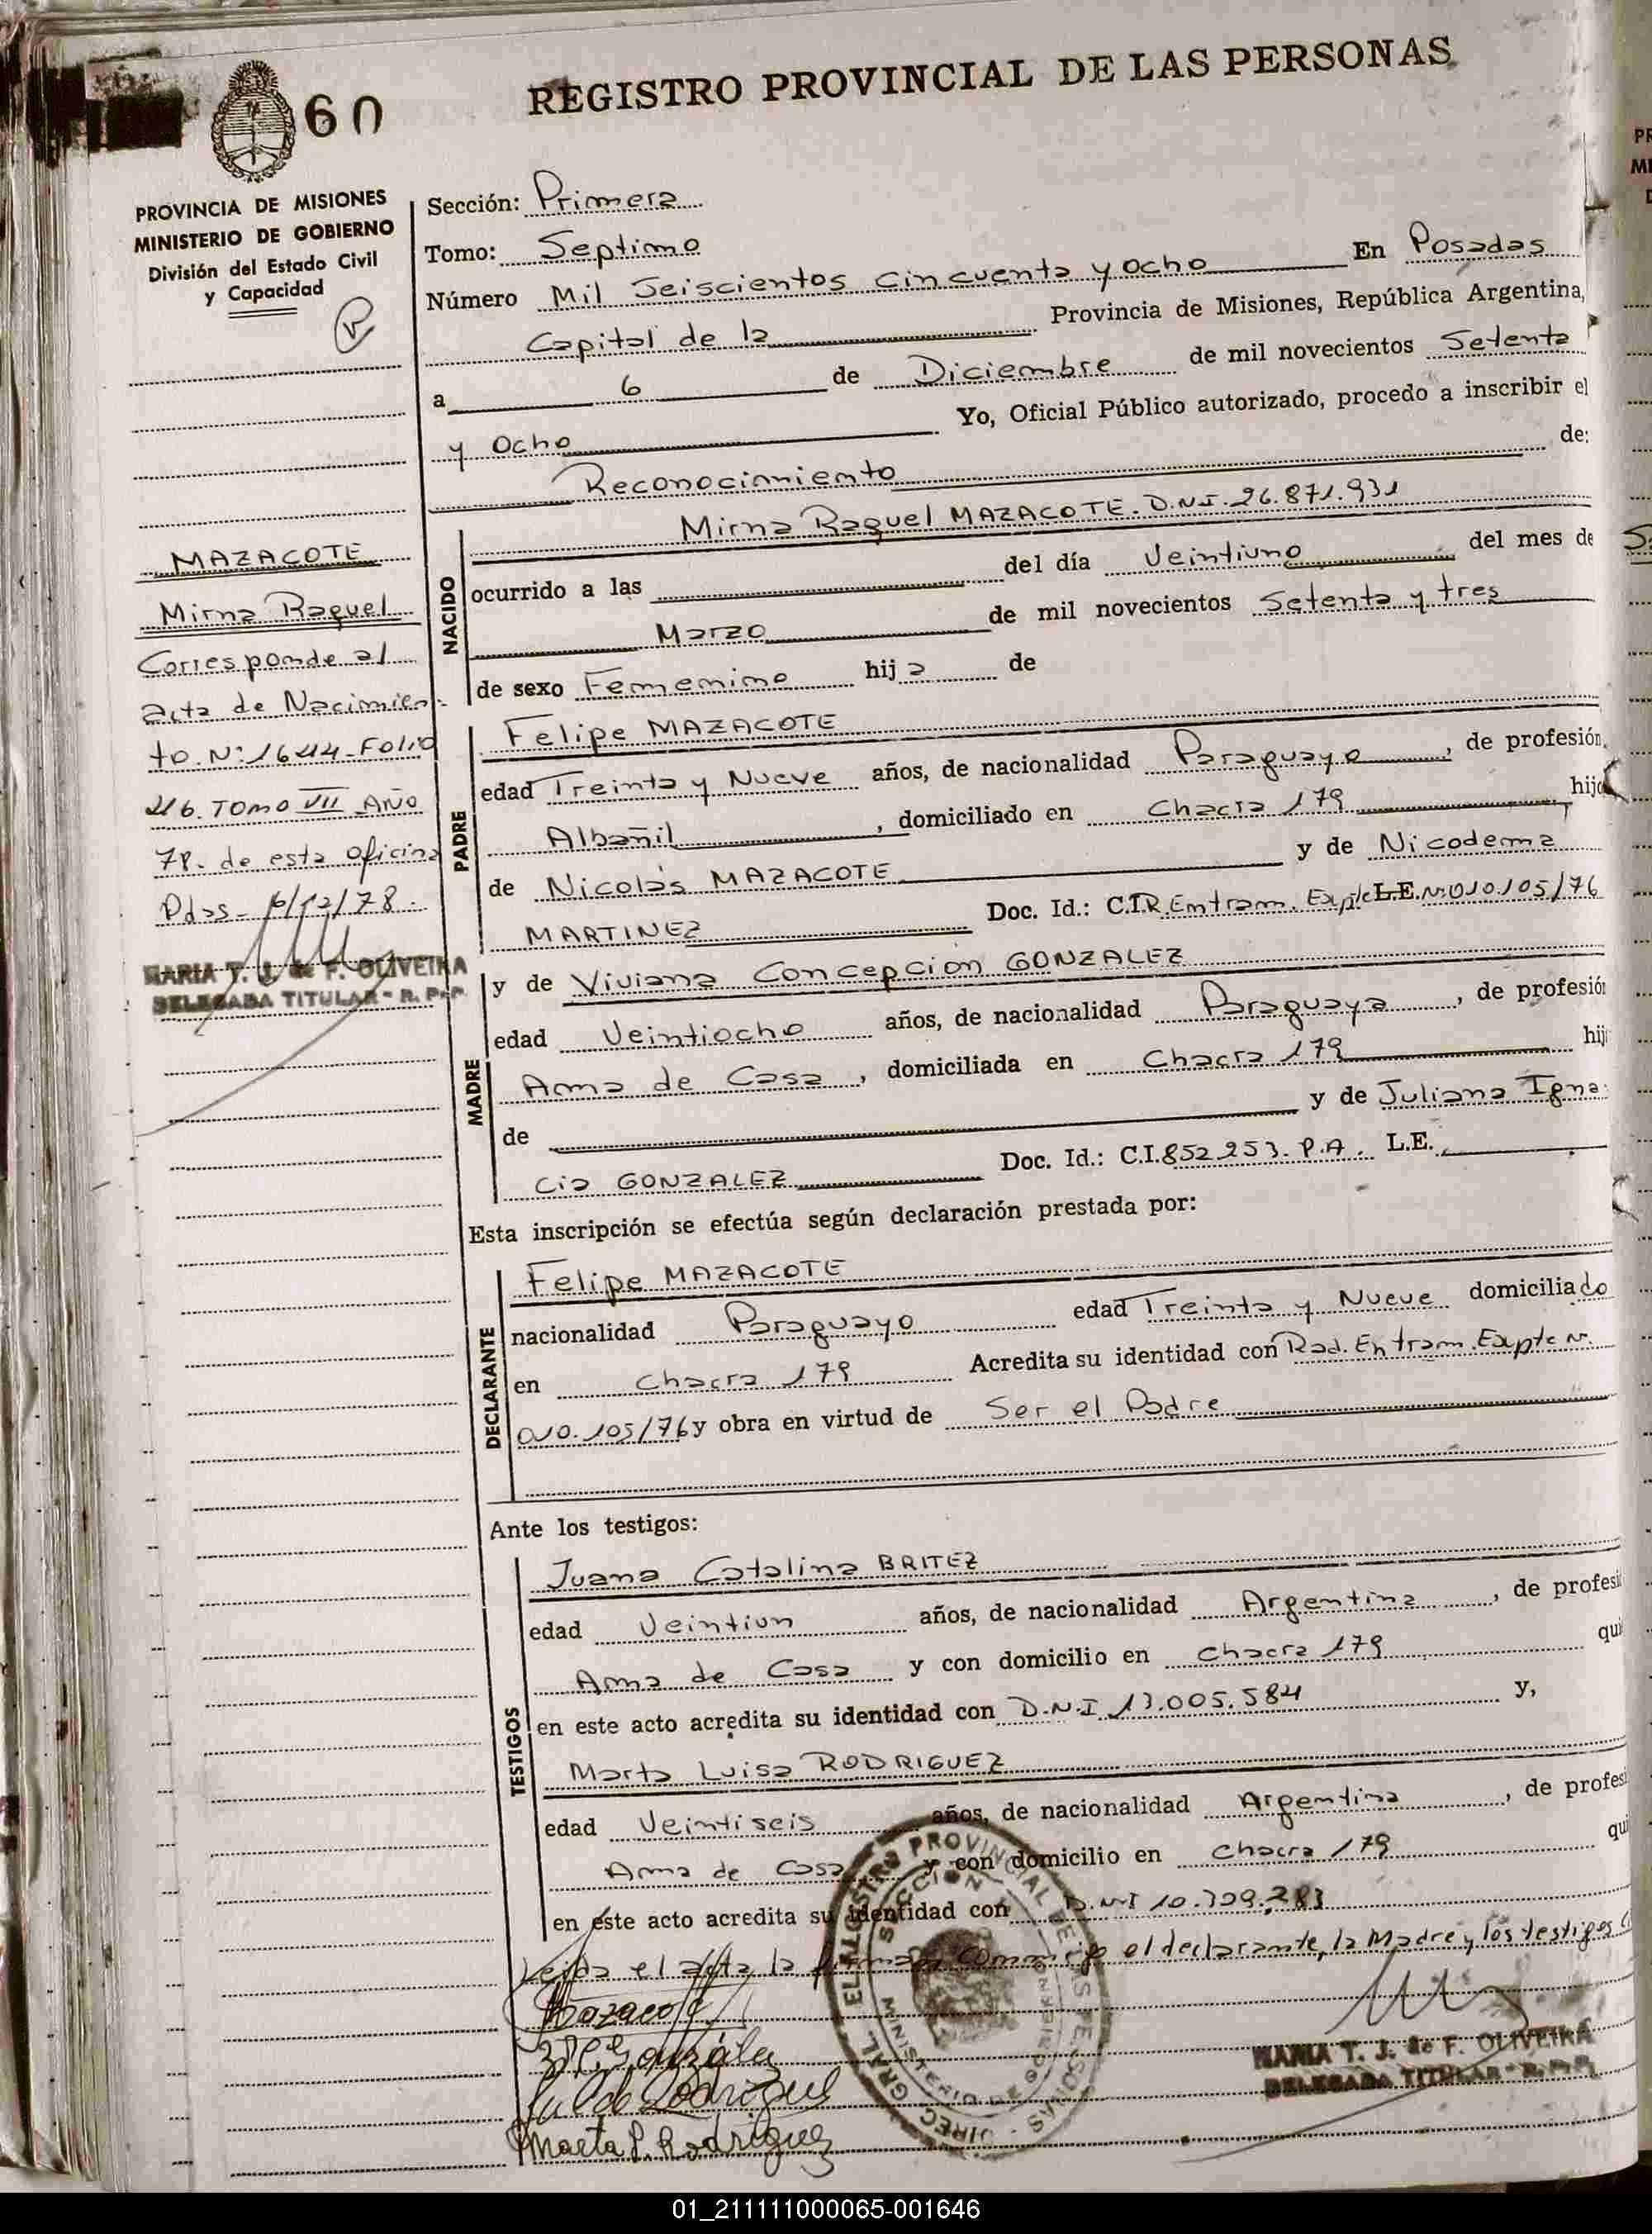 60
REGISTRO PROVINCIAL DE LAS PERSONAS
PROVINCIA DE MISIONES
MINISTERIO DE GOBIERNO
División del Estado Civil
y Capacidad
MAZACOTE
Mirna Raquel
Corresponde al
acta de Nacimien-
to. Nº 1644-Folio
46. TOMO VII Año
78. de esta oficina
Pdas- 6/12/78.
MARIA T. J. de F. OLIVEIRA
DELEGADA TITULAR - R. P. P.
Sección: Primera
Tomo: Septimo
Número Mil Seiscientos cincuenta y ocho En Posadas
Capital de la Provincia de Misiones, República Argentina,
a 6 de Diciembre de mil novecientos Setenta
y Ocho Yo, Oficial Público autorizado, procedo a inscribir el
Reconocimiento de:
NACIDO
Mirna Raquel MAZACOTE. D.N.I. 26.871.931
ocurrido a las del día Veintiuno del mes de
Marzo de mil novecientos Setenta y tres
de sexo Femenino hija de
PADRE
Felipe MAZACOTE
edad Treinta y Nueve años, de nacionalidad Paraguayo, de profesión,
Albañil, domiciliado en Chacra 179 hijo
de Nicolás MAZACOTE y de Nicodema
MARTINEZ Doc. Id.: C.I.R. Entram. Expte L.E. Nº 010.105/76
MADRE
y de Viviana Concepcion GONZALEZ
edad Veintiocho años, de nacionalidad Paraguaya, de profesión
Ama de Casa, domiciliada en Chacra 179 hij
de y de Juliana Igna
cia GONZALEZ Doc. Id.: C.I. 852.253. P.A. L.E.
Esta inscripción se efectúa según declaración prestada por:
DECLARANTE
Felipe MAZACOTE
nacionalidad Paraguayo edad Treinta y Nueve domiciliado
en Chacra 179 Acredita su identidad con Rad. Entram. Expte N.
010.105/76 y obra en virtud de Ser el Padre
Ante los testigos:
TESTIGOS
Juana Catalina BRITEZ
edad Veintiun años, de nacionalidad Argentina, de profesi
Ama de Casa y con domicilio en Chacra 179 qui
en este acto acredita su identidad con D.N.I 13.005.584 y,
Marta Luisa RODRIGUEZ
edad Veintiseis años, de nacionalidad Argentina, de profesi
Ama de Casa y con domicilio en Chacra 179 qui
en este acto acredita su identidad con D.N.I 10.329.283
Leída el acta, la firman conmigo el declarante, la Madre y los testigos
Mazacote
González
Rodriguez
Marta L. Rodriguez
DIREC. GRAL. EL REGISTRO PROVINCIAL DE LAS PERSONAS
SECCION
MINISTERIO DE GOBIERNO
MARIA T. J. de F. OLIVEIRA
DELEGADA TITULAR - R. P. P.
01_211111000065-001646